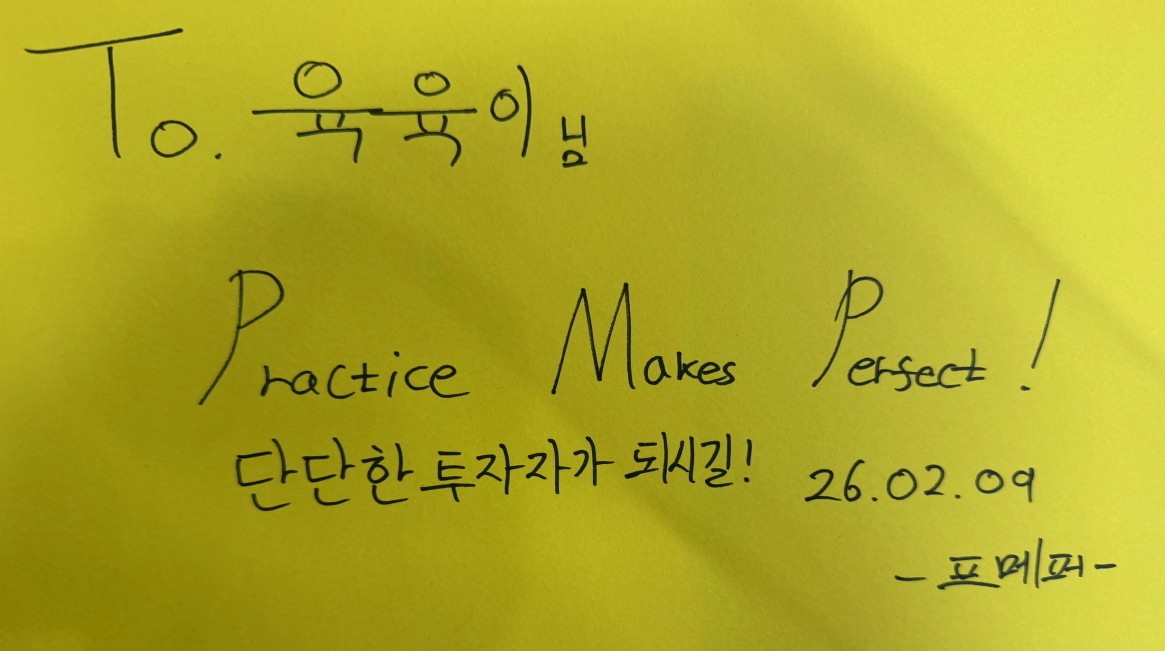 To. 육육이님
Practice Makes Perfect!
단단한 투자자가 되시길! 26.02.09
-프메퍼-